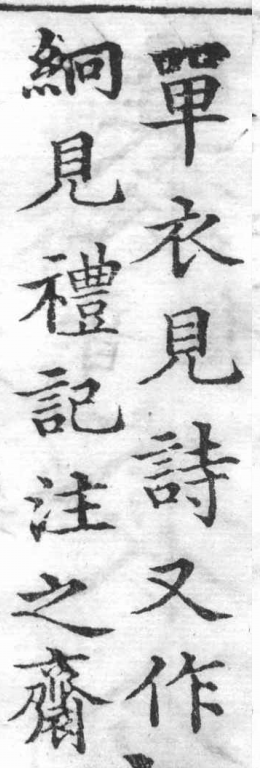 單衣見詩又作
絅見禮記注之齋